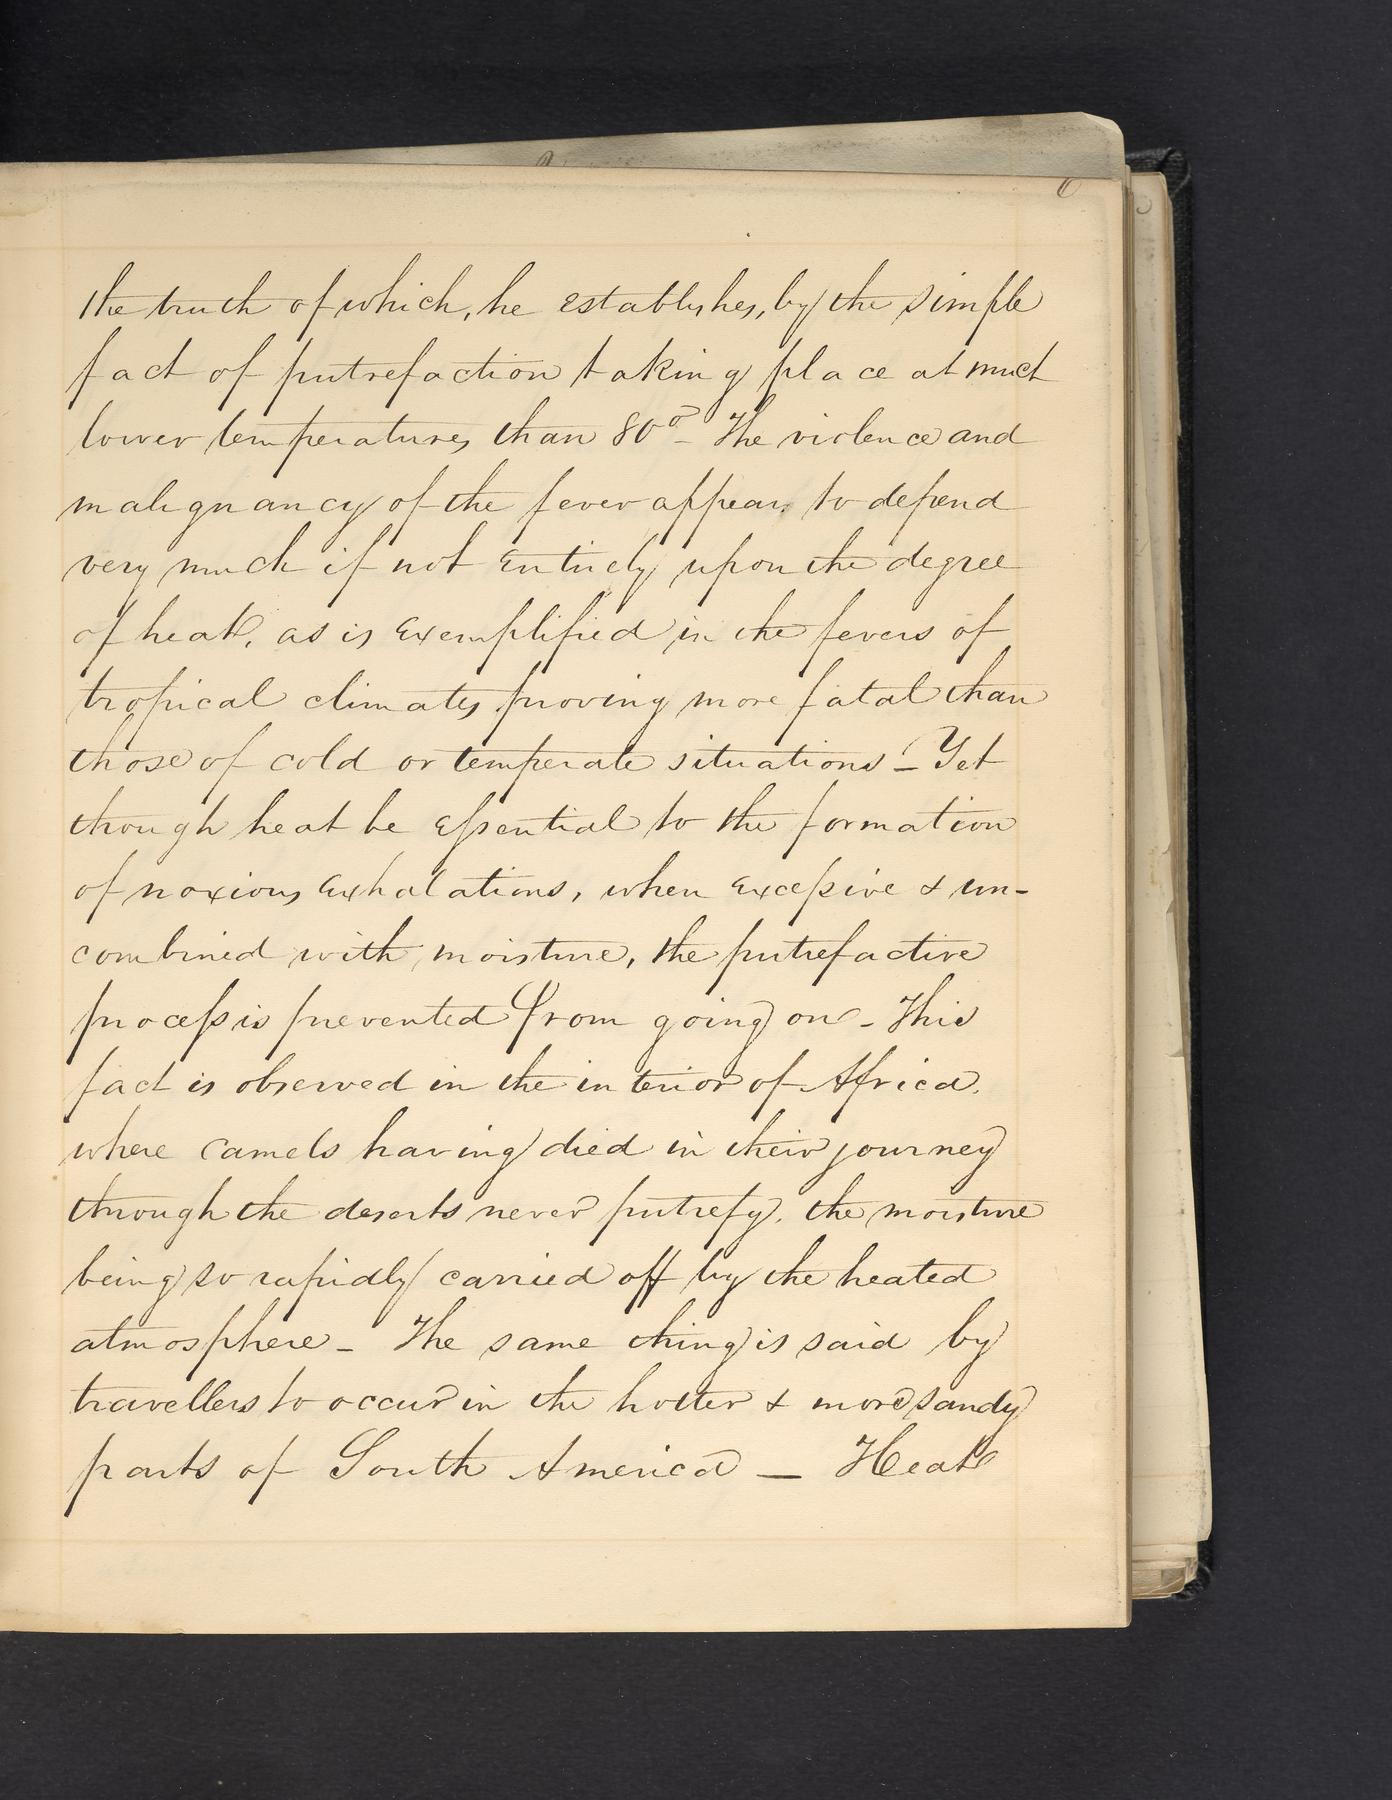 6
the truth of which, he establishes, by the simple
fact of putrefaction taking place at much
lower temperatures than 80° - The violence and
malignancy of the fever appears to depend
very much if not entirely upon the degree
of heat, as is exemplified in the fevers of
tropical climates proving more fatal than
those of cold or temperate situations - Yet
though heat be essential to the formation
of noxious exhalations, when excessive & un-
combined with moisture, the putrefactive
process is prevented from going on - This
fact is observed in the interior of Africa.
where camels having died in their journey
through the deserts never putrefy, the moisture
being so rapidly carried off by the heated
atmosphere - The same thing is said by
travellers to occur in the hotter & more sandy
parts of South America — Heat